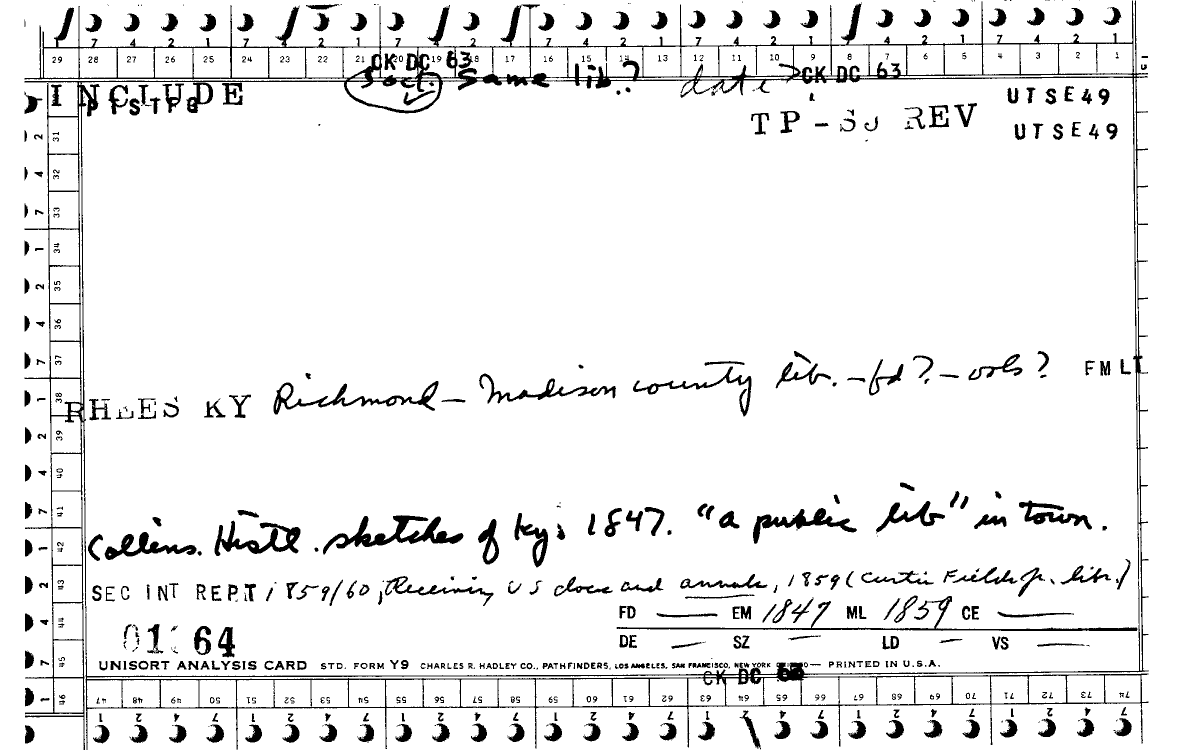 7 4 2 1 7 4 2 1 7 4 2 1 7 4 2 1 7 4 2 1 7 4 2 1 7 4 2 1
29 28 27 26 25 24 23 22 21 20 19 18 17 16 15 14 13 12 11 10 9 8 7 6 5 4 3 2 1
CK DC 63
Soct. Same lib? date? CK DC 63
INCLUDE
UTSE49
TP-SJ REV
UTSE49
RHEES KY Richmond — Madison county lib. — fd? — vols? FMLT
Collins. Histl. sketches of Ky. 1847. "a public lib" in town.
SEC INT REPT 1859/60, Receiving US docs and annals, 1859 (Curtis Field Jr. libr.)
FD — EM 1847 ML 1859 CE —
DE — SZ — LD — VS —
64
UNISORT ANALYSIS CARD STD. FORM Y9 CHARLES R. HADLEY CO., PATHFINDERS, LOS ANGELES, SAN FRANCISCO, NEW YORK — PRINTED IN U.S.A.
CK DC
47 48 49 50 51 52 53 54 55 56 57 58 59 60 61 62 63 64 65 66 67 68 69 70 71 72 73 74